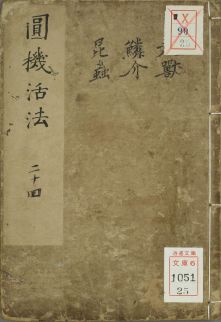 圓機活法
二十四
獸
鱗介
昆蟲
X
99
25
文庫6
1051
25